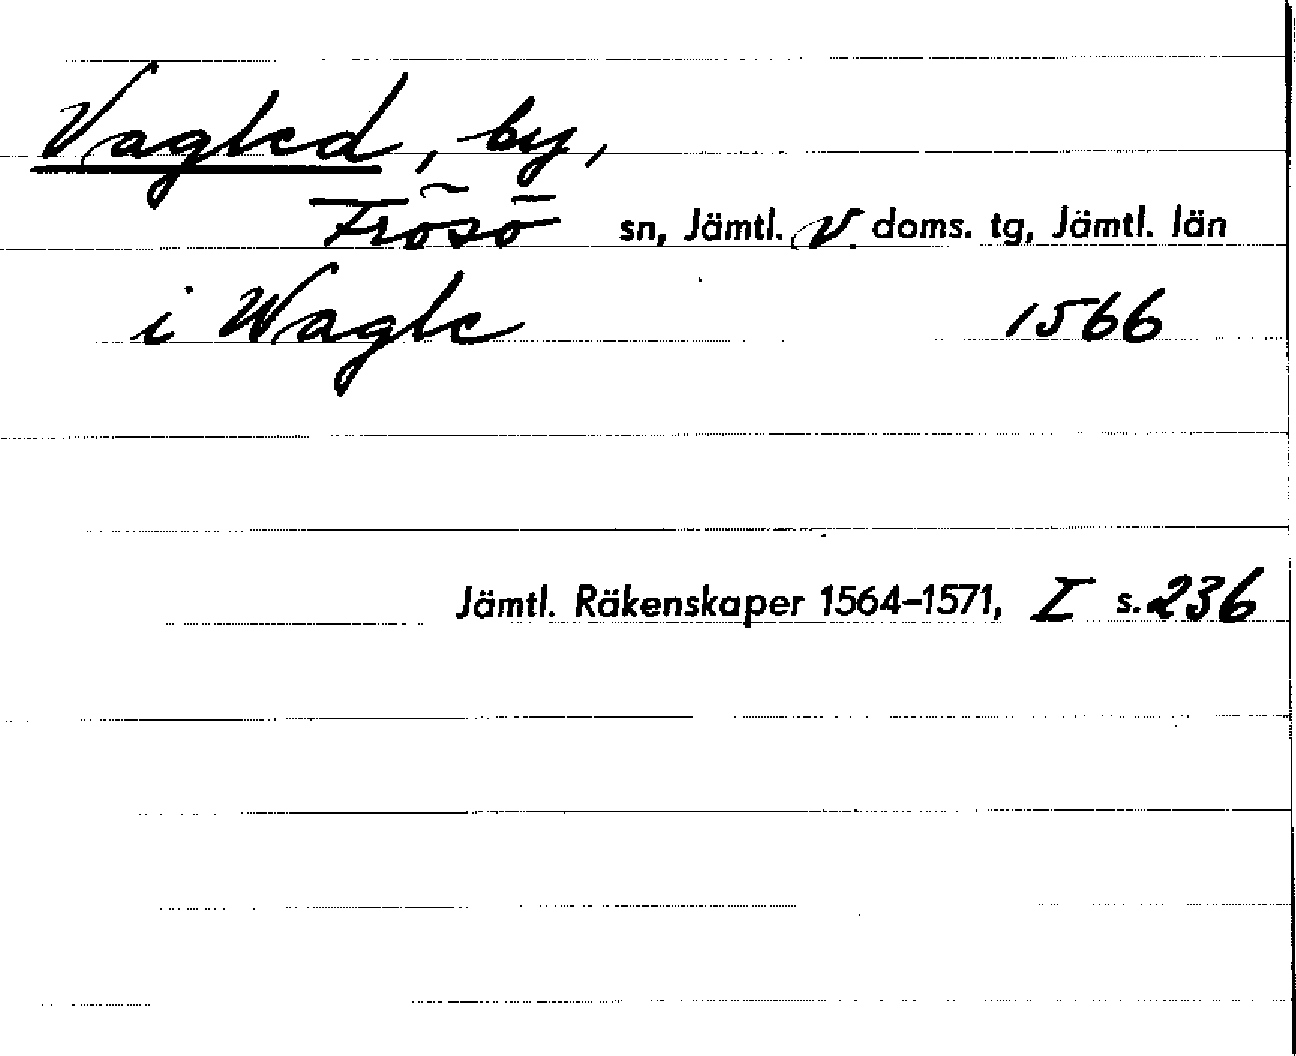 Vagled, by,
Frösö sn, Jämtl. V. doms. tg, Jämtl. län
i Wagle 1566
Jämtl. Räkenskaper 1564-1571, I s. 236